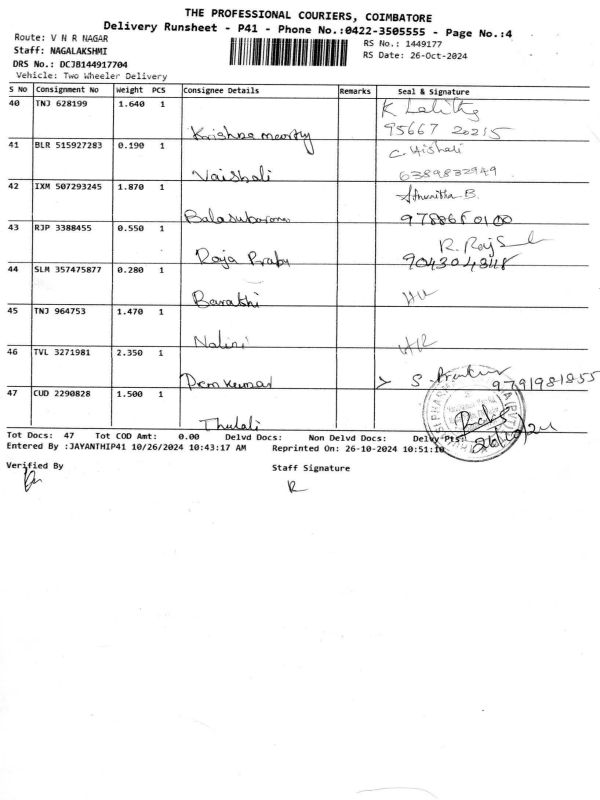 THE PROFESSIONAL COURIERS, COIMBATORE
Delivery Runsheet - P41 - Phone No.:0422-3505555 - Page No.:4
Route: V N R NAGAR
RS No.: 1449177
Staff: NAGALAKSHMI
RS Date: 26-Oct-2024
DRS No.: DCJB144917704
Vehicle: Two Wheeler Delivery
S No Consignment No Weight PCS Consignee Details Remarks Seal & Signature
40 TNJ 628199 1.640 1 K Lalitha
Krishna moorthy 95667 20215
41 BLR 515927283 0.190 1
Vaishali 6389832949
42 IXM 507293245 1.870 1
43 RJP 3388455 0.550 1
Raja Prabu
44 SLM 357475877 0.280 1
Barathi
45 TNJ 964753 1.470 1
Nalini
46 TVL 3271981 2.350 1
Prem kumar 9791981855
47 CUD 2290828 1.500 1
Thulali 26/10/24
Tot Docs: 47 Tot COD Amt: 0.00 Delvd Docs: Non Delvd Docs: Delvy Pts:
Entered By :JAYANTHIP41 10/26/2024 10:43:17 AM Reprinted On: 26-10-2024 10:51:10
Verified By Staff Signature